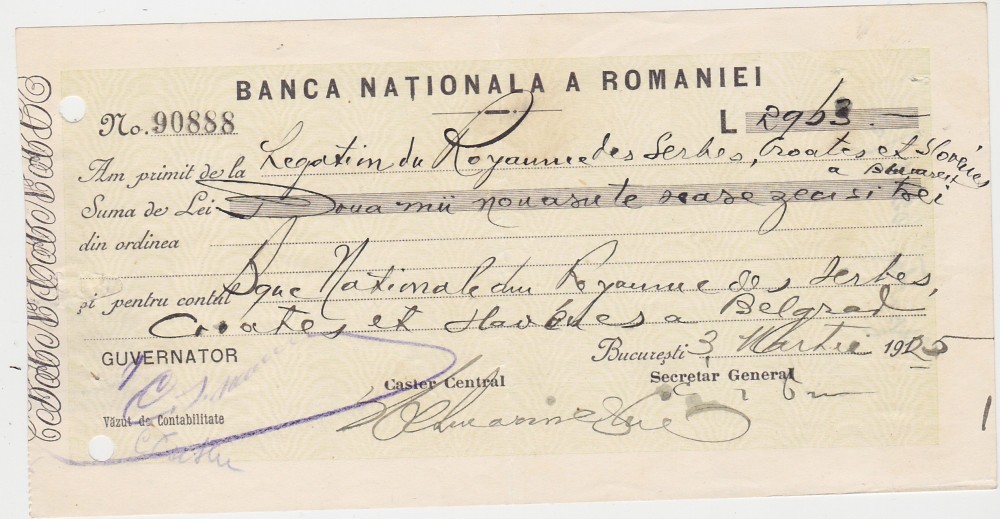 BANCA NAȚIONALA A ROMANIEI
No. 90888
L 2963.—
Am primit de la Legation du Royaume des Serbes, Croates et Slovènes
a Bucarest
Suma de Lei Doua mii nouasute sease zeci si trei
din ordinea
și pentru contul Bque Nationale du Royaume des Serbes,
Croates et Slovènes a Belgrad
București 3 Martie 1925
GUVERNATOR
Casier Central
Secretar General
Văzut de Contabilitate